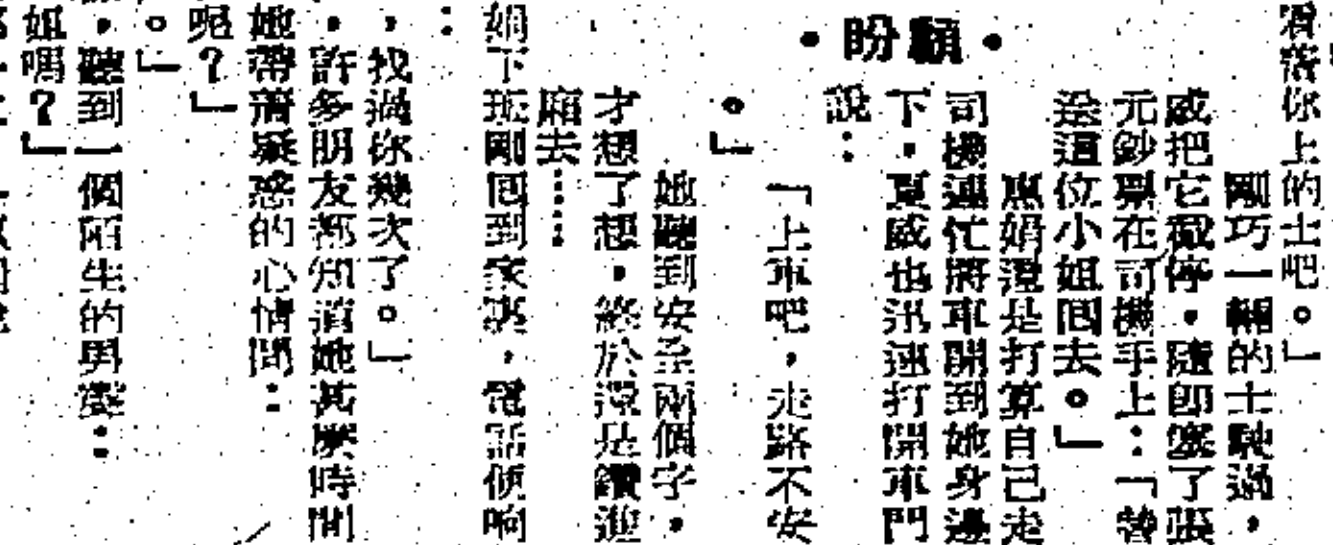 看落你上的士吧。」
剛巧一輛的士駛過，
威把它截停，隨即塞了張
元鈔票在司機手上：「替
送這位小姐回去。」
惠娟還是打算自己走
司機連忙將車開到她身邊
下，夏威也迅速打開車門
說：
•盼顧•
「上車吧，走路不安
。」
她聽到安全兩個字，
才想了想，終於還是鑽進
廂去……
娟下班剛回到家裏，電話便响
：
，找過你幾次了。」
，許多朋友都知道她甚麼時間
她帶着疑惑的心情問：
呢？」
。」
，聽到一個陌生的男聲：
姐嗎？」